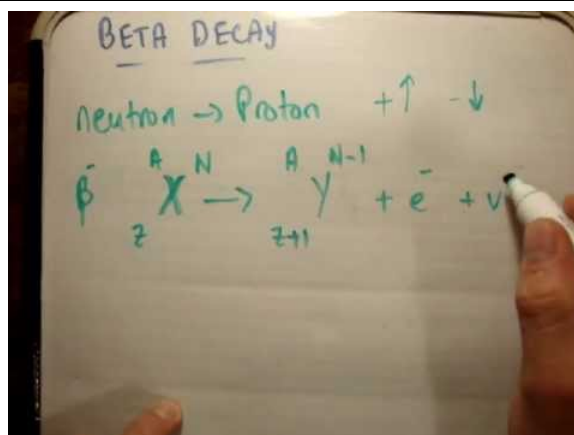 BETA DECAY
neutron → Proton +↑ -↓
β⁻ ᴬ_Z X ᴺ → ᴬ_Z+1 Y ᴺ⁻¹ + e⁻ + v